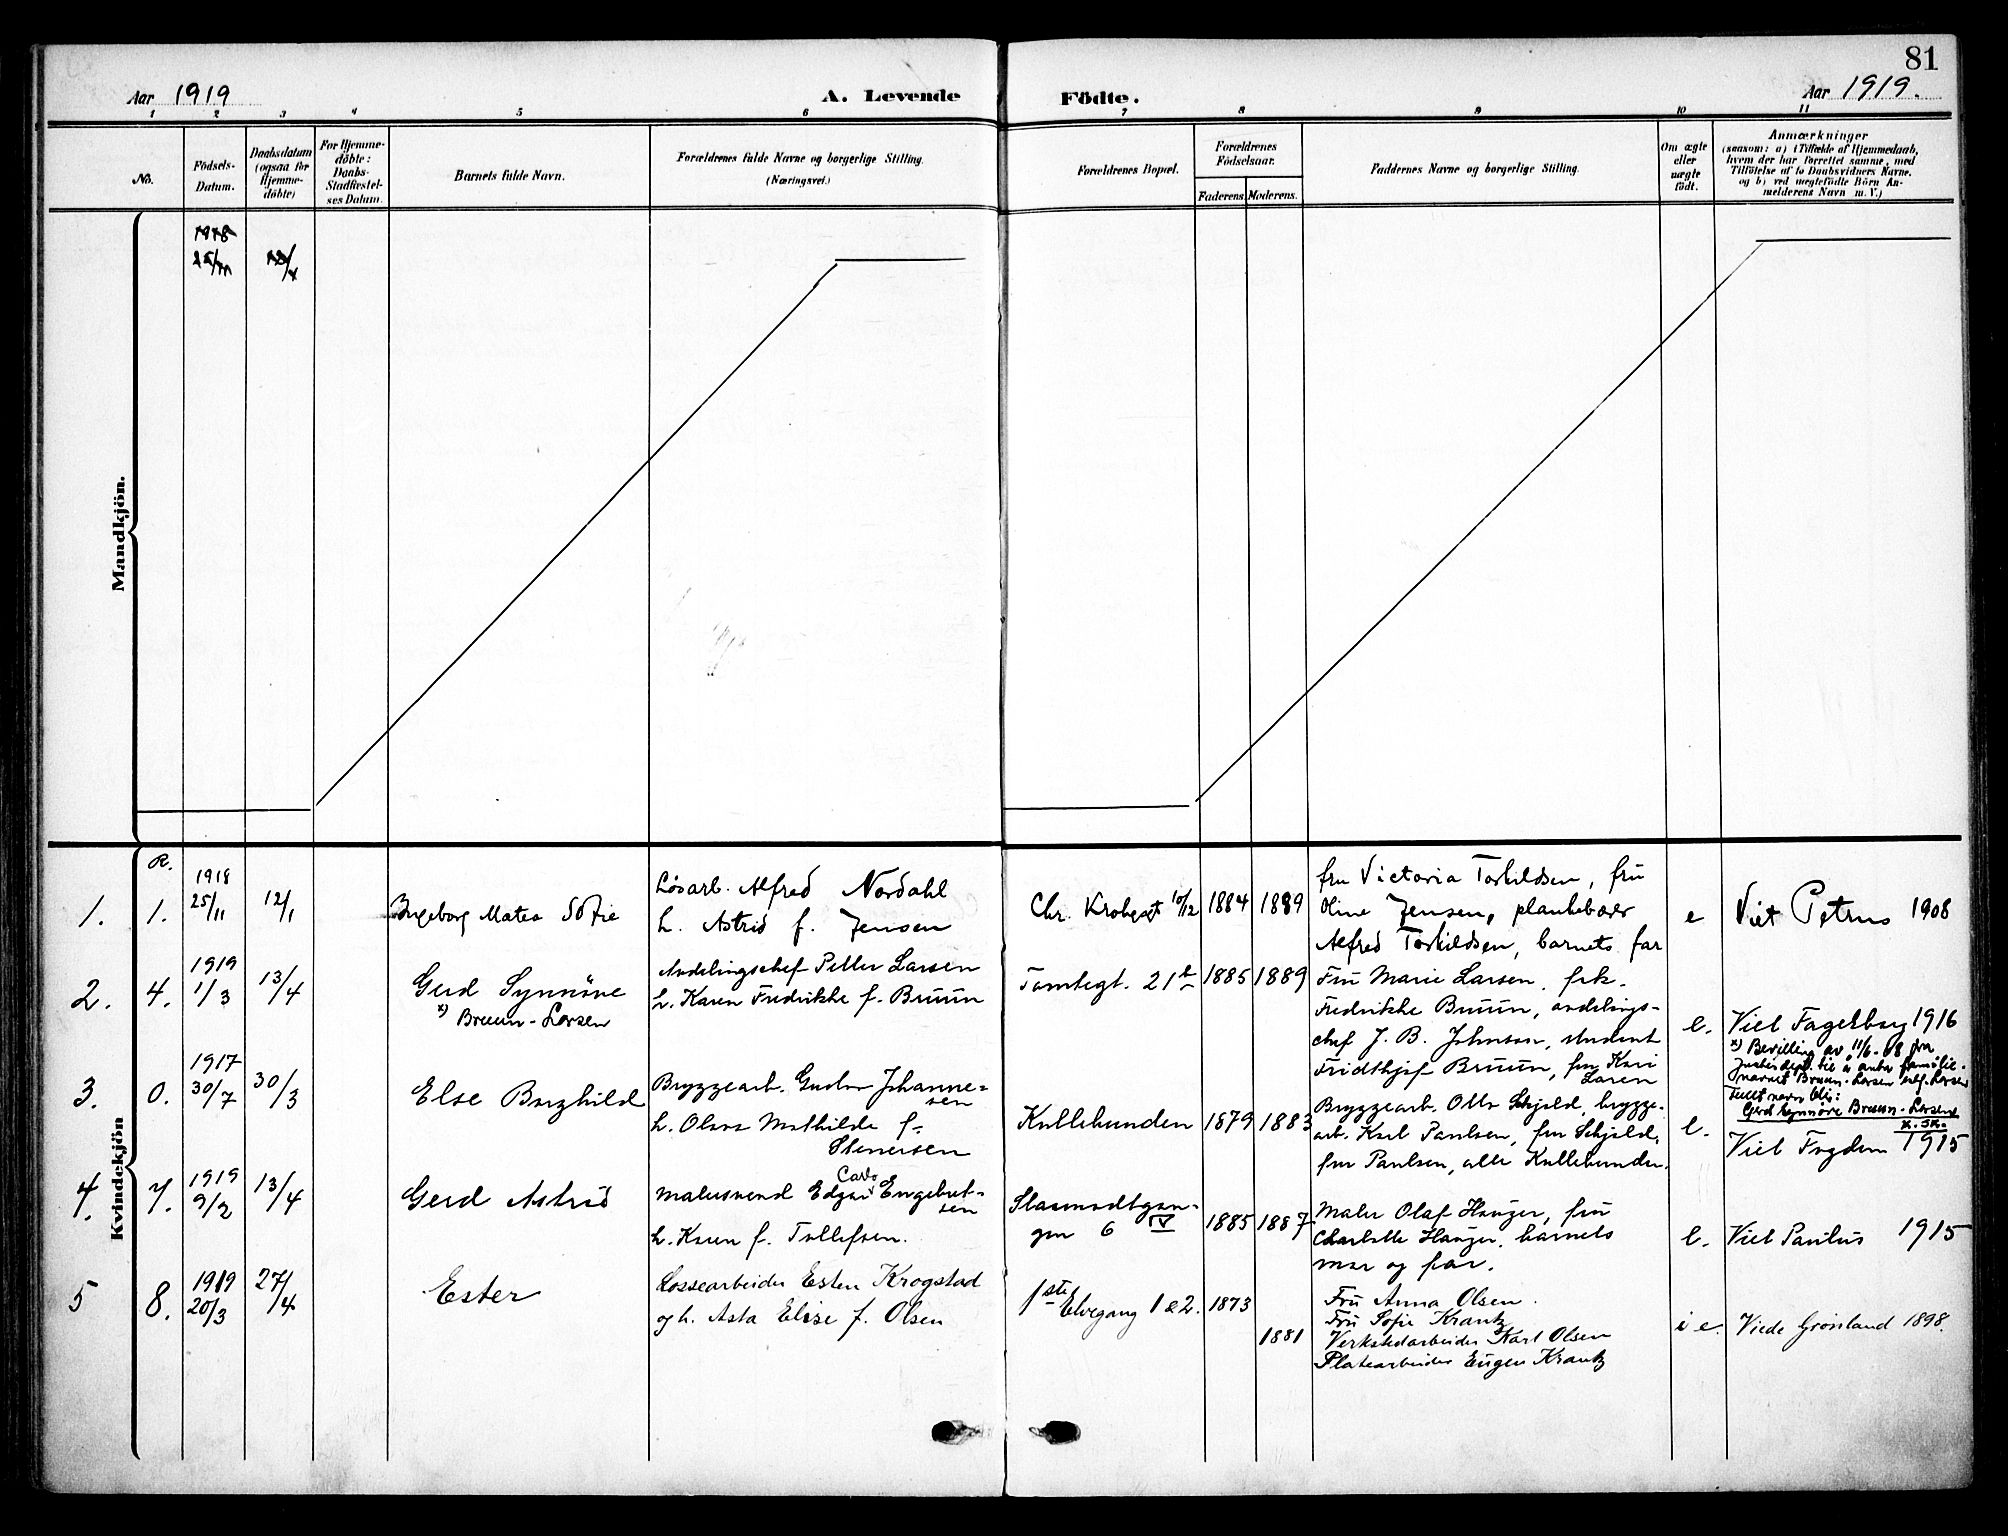 81
Aar 1919
A. Levende
Födte.
Aar 1919.
1 2 3 4 5 6 7 8 9 10 11
No.
Födsels-
Datum.
Daabsdatum
(ogsaa for
Hjemme-
döbte)
For Hjemme-
döbte:
Daabs-
Stadfæstel-
ses Datum.
Barnets fulde Navn.
Forældrenes fulde Navne og borgerlige Stilling.
(Næringsvei.)
Forældrenes Bopæl.
Forældrenes
Födselsaar.
Faderens. Moderens.
Faddernes Navne og borgerlige Stilling.
Om ægte
eller
uægte
födt.
Anmærkninger
(saasom: a) i Tilfælde af Hjemmedaab,
hvem der har forrettet samme, med
Tilföielse af to Daabsvidners Navne.
og b) ved uægtefödte Börn An-
melderens Navn m. V.)
Mandkjön.
1918
25/11
Kvindekjön
R.
1. 1.
1918
25/11
12/1
Ingeborg Matea Sofie
Løsarb. Alfred Nordahl
h. Astrid f. Jensen
Chr. Krohgsgt 10/12
1884 1889
fru Victoria Torkildsen, fru
Oline Jensen, plankebærer
Alfred Torkildsen, barnets far
e
Viet Petrus 1908
2. 4.
1919
1/3
13/4
Gerd Synnöve
x) Bruun-Larsen
Avdelingschef Petter Larsen
h. Karen Fredrikke f. Bruun
Tomtegt. 21 b
1885 1889
Fru Marie Larsen, frk.
Fredrikke Bruun, avdelings-
chef J. B. Johnson, student
Fridthjof Bruun, fru Kari
Larsen
e.
Viet Fagerborg 1916
x) Bevilling av 11/6-08 fra
Justisdept. til å anta familie-
navnet Bruun-Larsen self. Larsen
Fullt navn blir:
Gerd Synnöve Bruun-Larsen
3. 0.
1917
30/7
30/3
Else Borghild
Bryggearb. Gustav Johanne-
sen
h. Olava Mathilde f.
Stenersen
Kullebunden
1879 1883
Bryggearb. Otto Schjold, brygge-
arb. Karl Paulsen, fru Schjold,
fru Paulsen, alle Kullebunden.
e.
Viet Frogdem 1915
4. 7.
1919
9/2
13/4
Gerd Astrid
Malersvend Edgar Carlo Engebret-
sen
h. Karen f. Tollefsen.
6 IV
1885 1887
Maler Olaf Hauger, fru
Charlotte Hauger, barnets
mor og far.
e.
Viet Paulus 1915
5 8.
1919
20/3
27/4
Ester
Lossearbeider Esten Krogstad
og h. Asta Elise f. Olsen
1ste Elvegang 1 & 2.
1873
1881
Fru Anna Olsen.
Fru Sofie Krantz
Verkstedarbeider Karl Olsen
Platearbeider Eugen Krantz
i e.
Viede Grönland 1898.